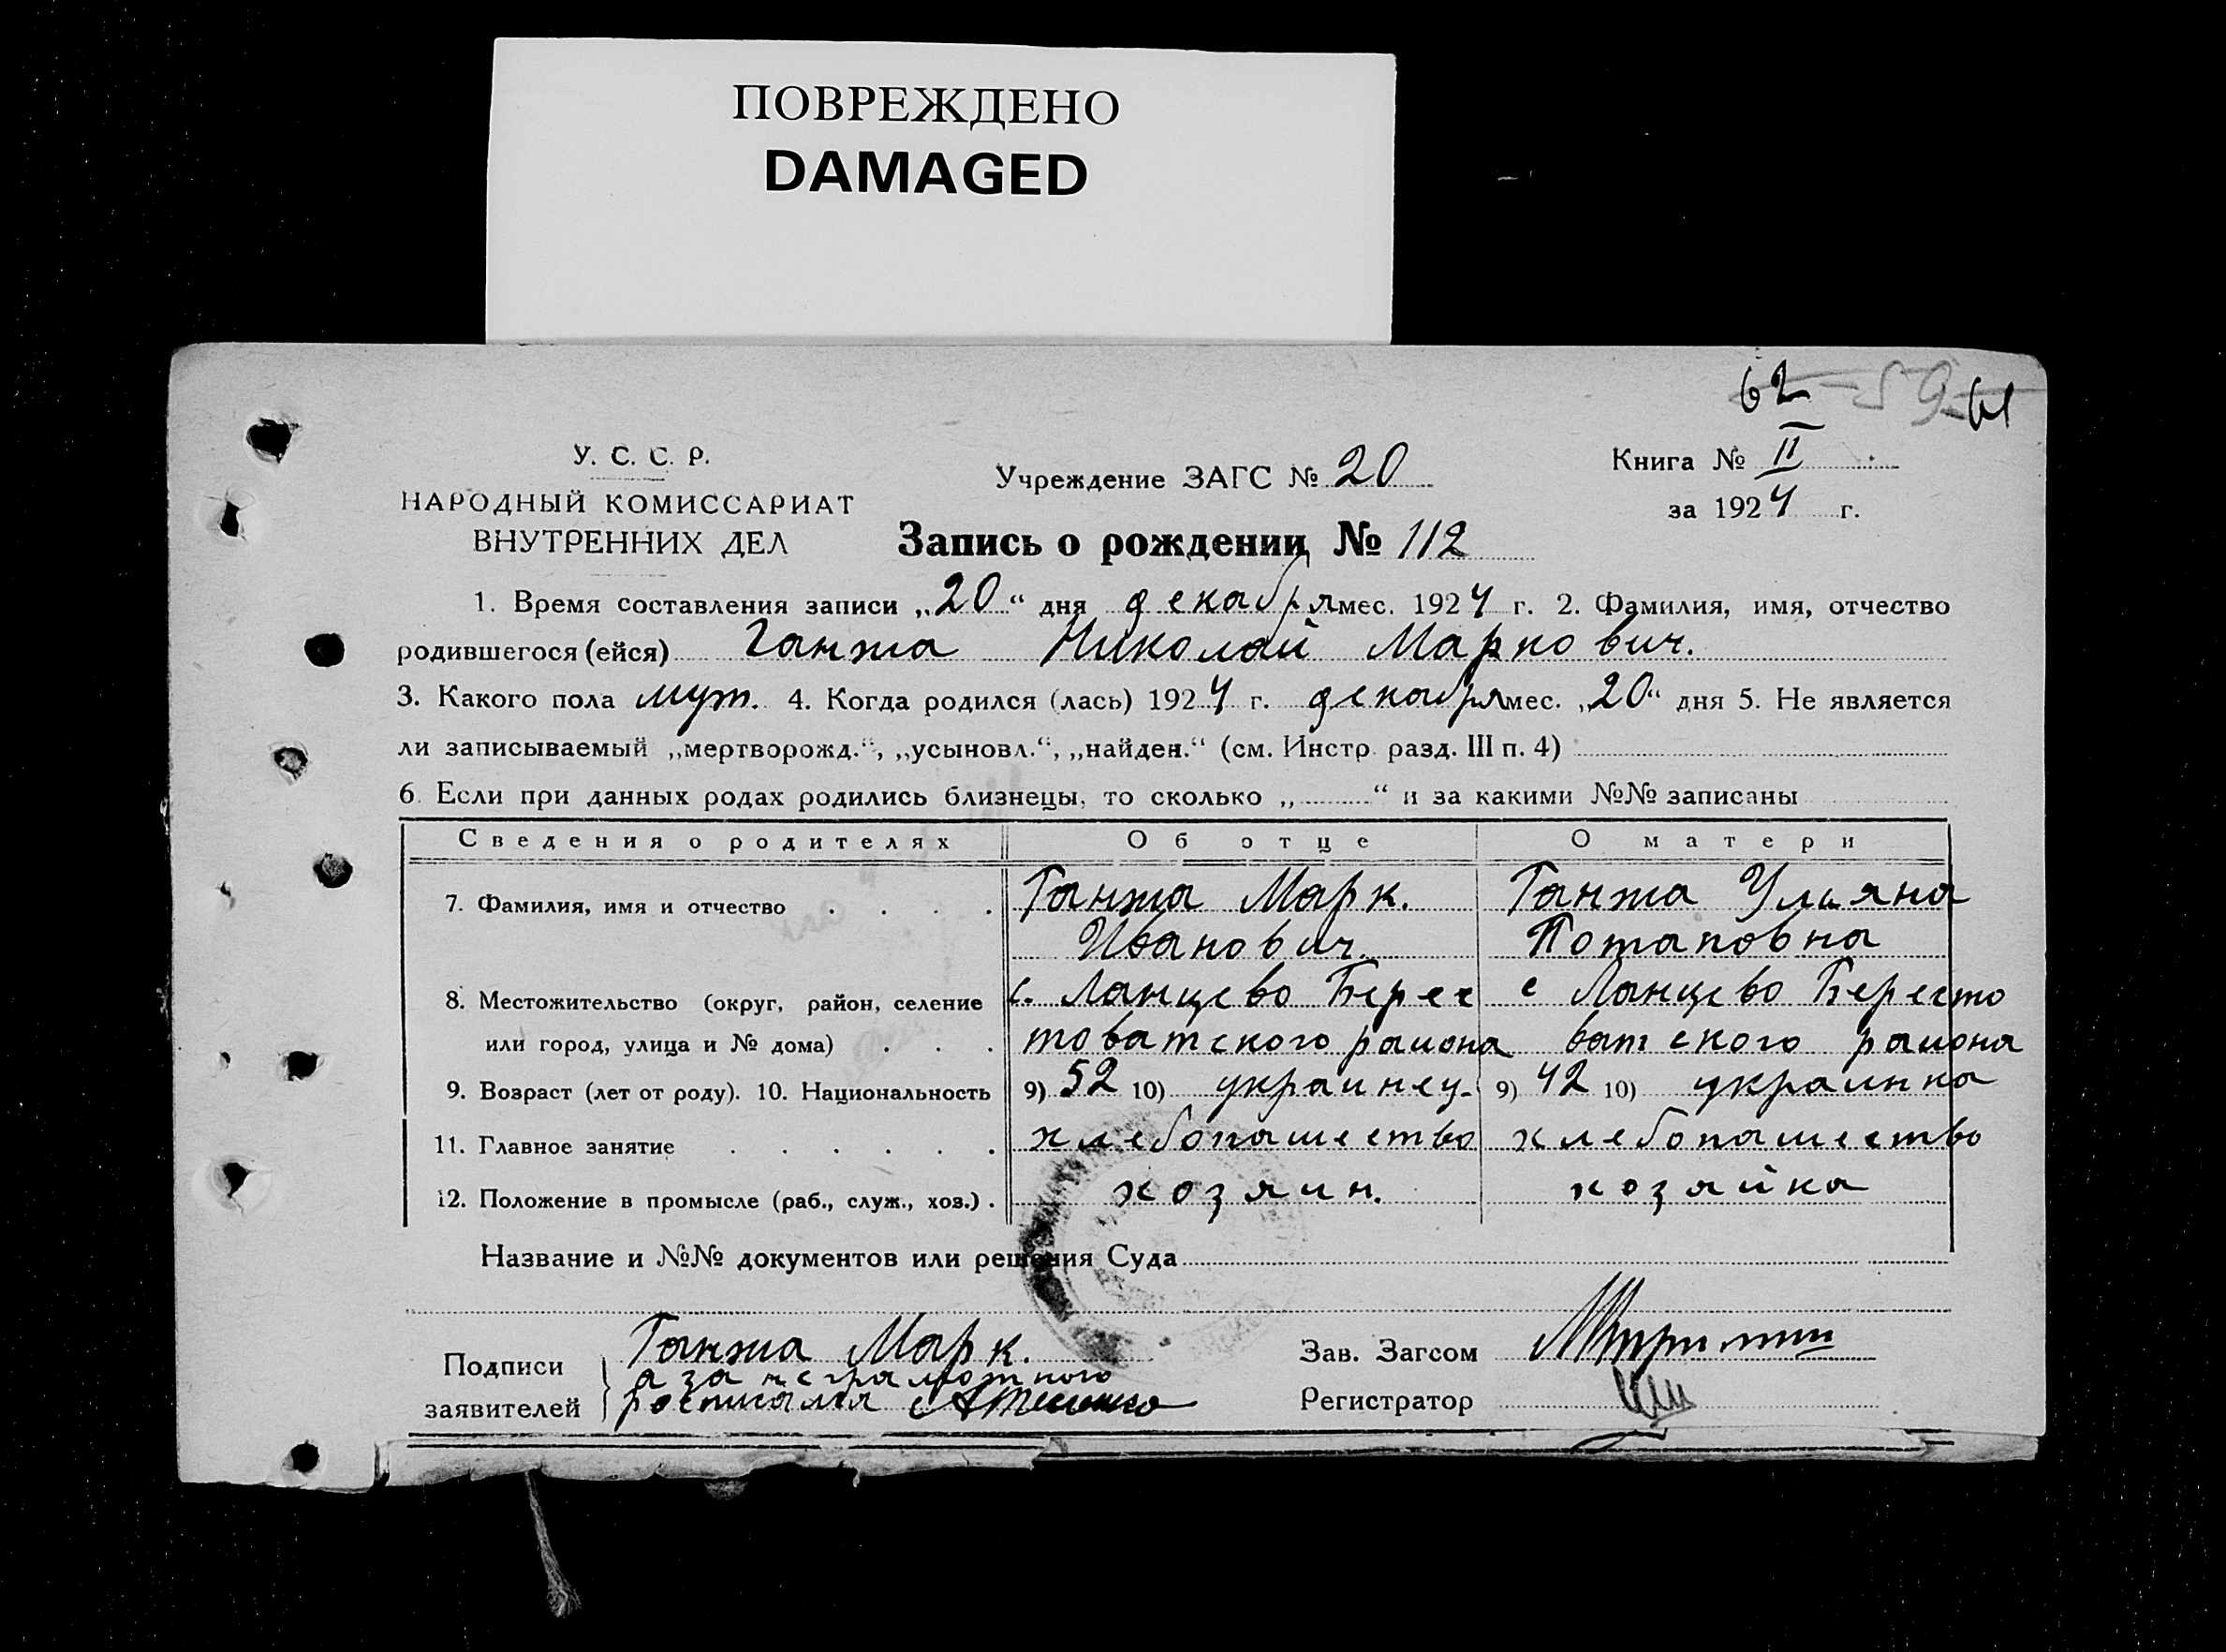 ПОВРЕЖДЕНО
DAMAGED
62 59 61
У. С. С. Р.
НАРОДНЫЙ КОМИССАРИАТ
ВНУТРЕННИХ ДЕЛ
Учреждение ЗАГС № 20
Книга № II
за 1924 г.
Запись о рождении № 112
1. Время составления записи „20“ дня декабря мес. 1924 г. 2. Фамилия, имя, отчество
родившегося (ейся) Ганжа Николай Маркович.
3. Какого пола муж. 4. Когда родился (лась) 1924 г. декабря мес. „20“ дня 5. Не является
ли записываемый „мертворожд.“, „усыновл.“, „найден.“ (см. Инстр. разд. III п. 4)
6. Если при данных родах родились близнецы, то сколько „ “ и за какими №№ записаны
Сведения о родителях Об отце О матери
7. Фамилия, имя и отчество Ганжа Марк. Ганжа Ульяна
Иванович Потаповна
8. Местожительство (округ, район, селение с. Ланцево Берес с Ланцево Бересто
или город, улица и № дома) товатского района ватского района
9. Возраст (лет от роду). 10. Национальность 9) 52 10) украинец. 9) 42 10) украинка
11. Главное занятие хлебопашество хлебопашество
12. Положение в промысле (раб., служ., хоз.) хозяин. хозяйка
Название и №№ документов или решения Суда
Подписи
заявителей
Ганжа Марк.
а за неграмотного
росписался
Зав. Загсом
Регистратор